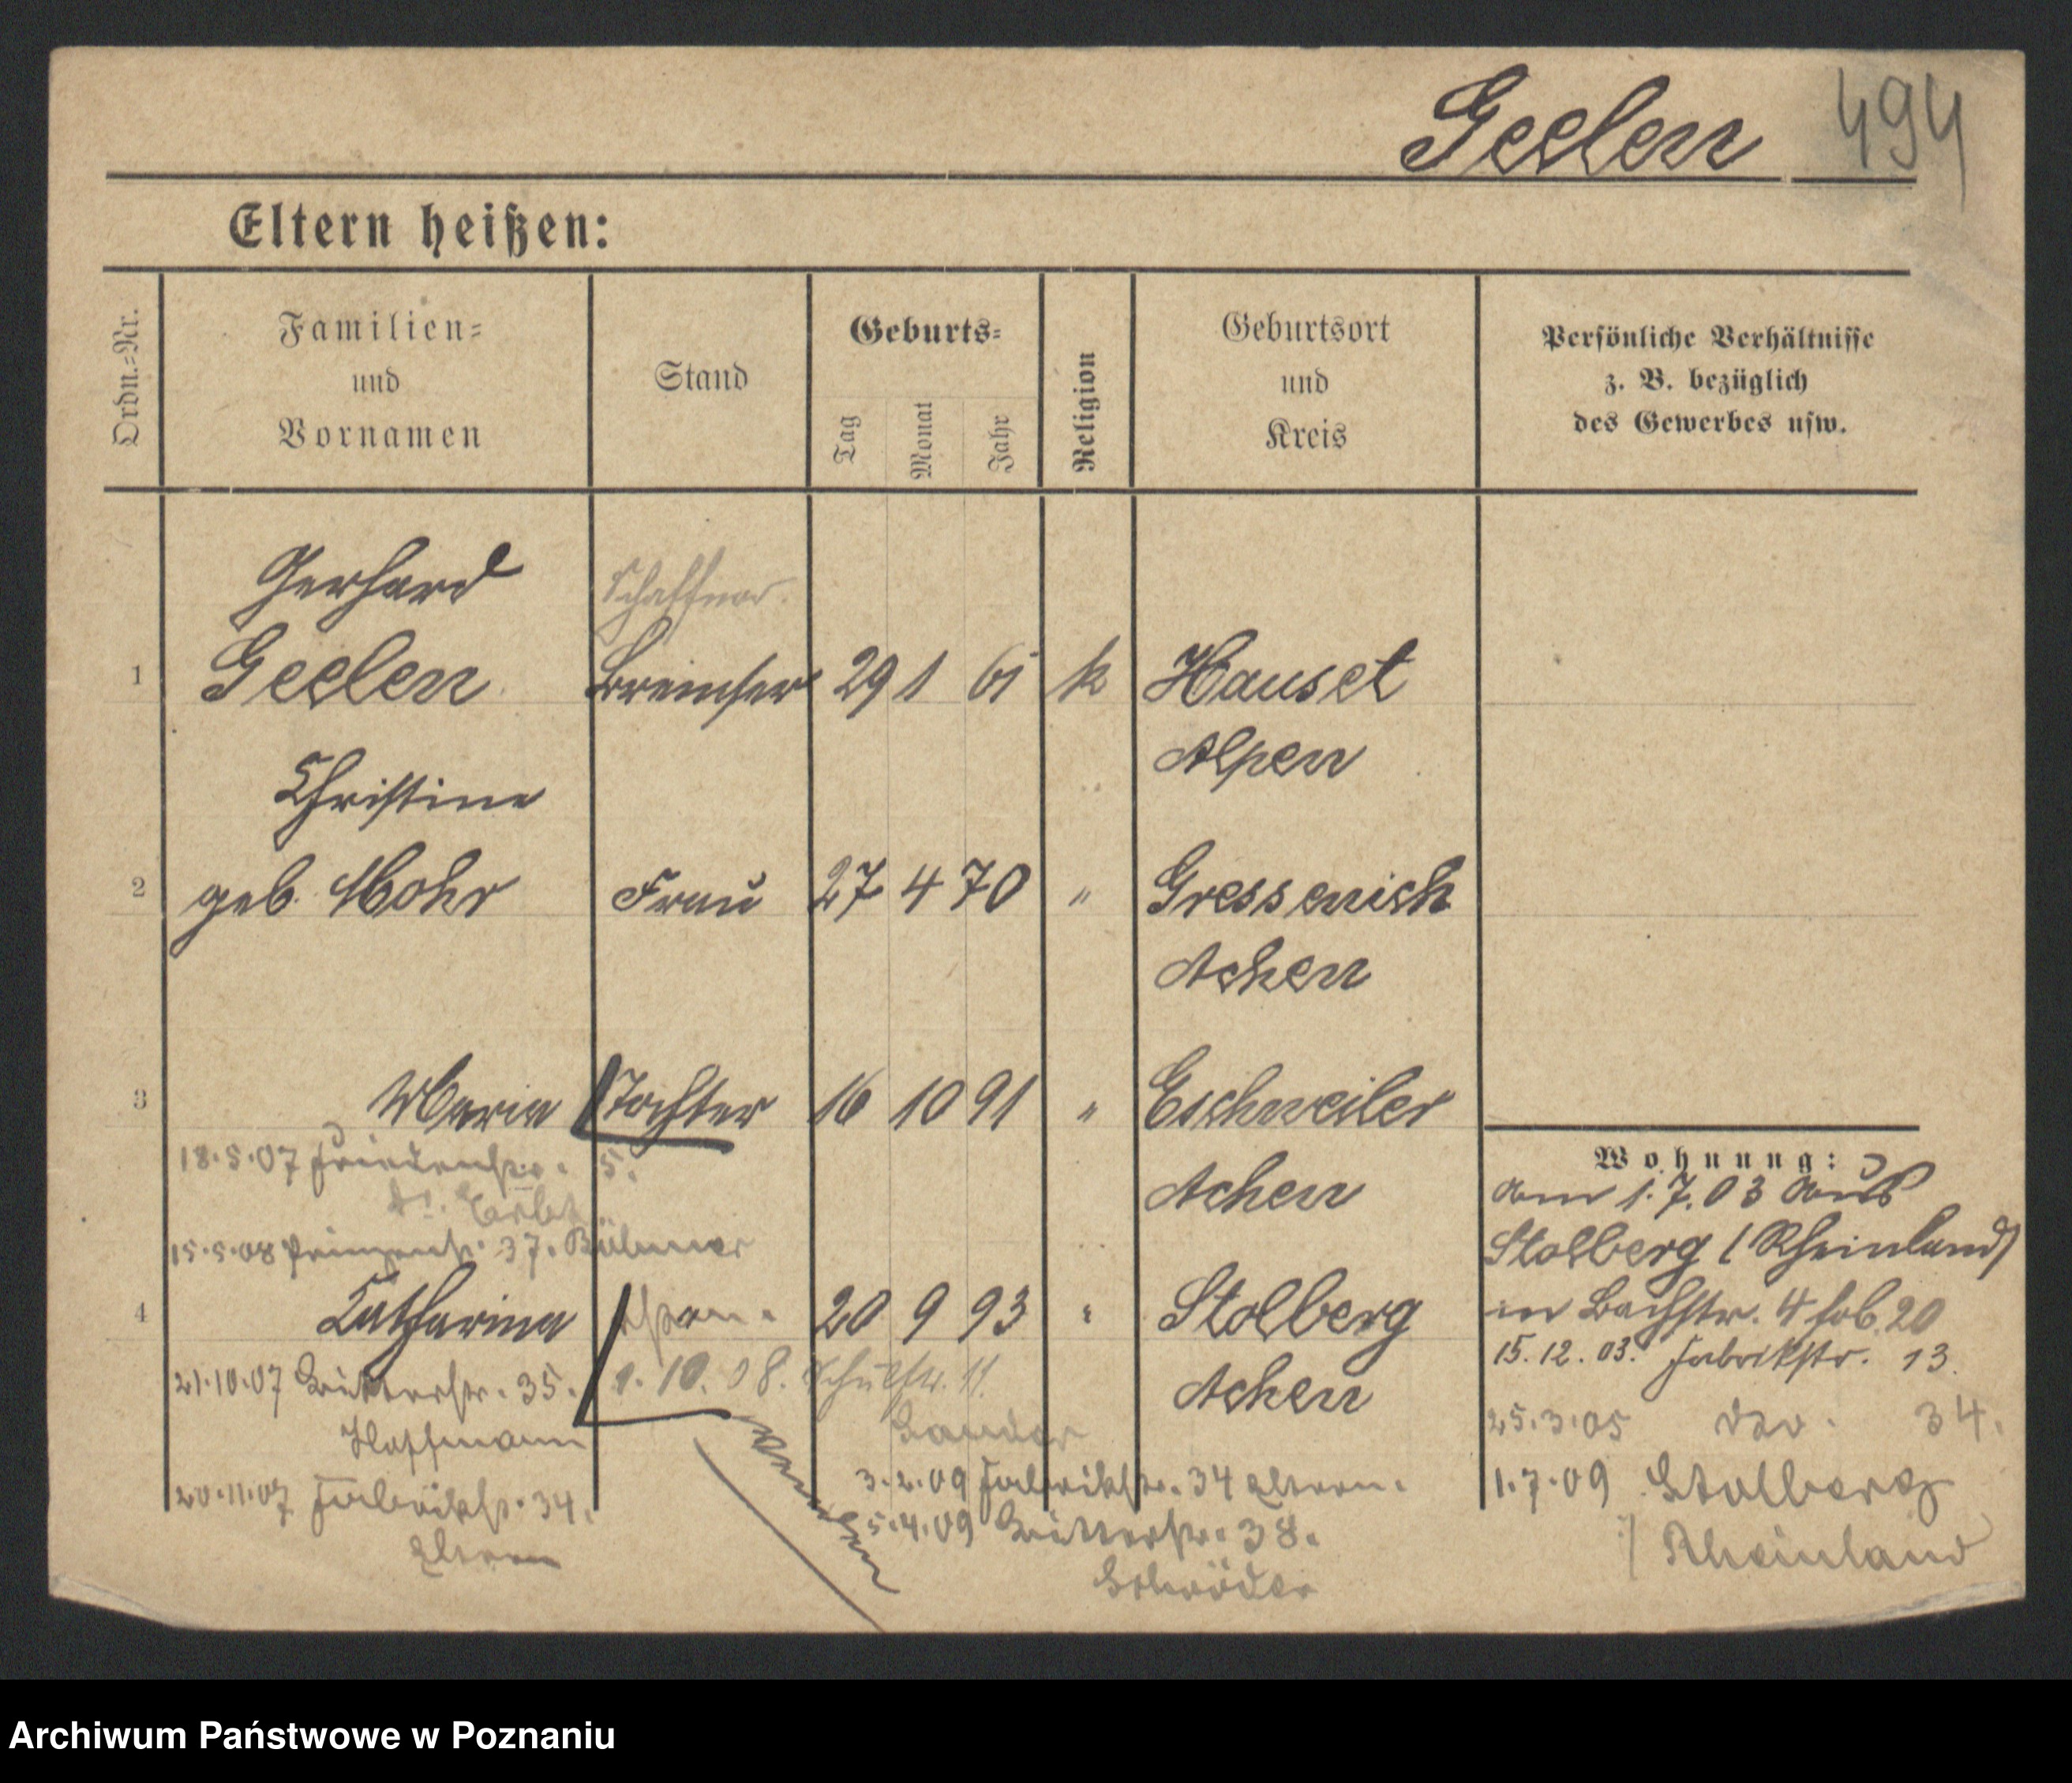 Geelen 494
Eltern heißen:
Ordn.=Nr.
Familien=
und
Vornamen
Stand
Geburts=
Tag
Monat
Jahr
Religion
Geburtsort
und
Kreis
Persönliche Verhältnisse
z. B. bezüglich
des Gewerbes usw.
Gerhard Schaffner.
1 Geelen Bremser 29 1 61 k Hauset
Christine
2 geb. Mohr Frau 27 4 70 " Gressenich
Achen
3 Maria Tochter 16 10 91 " Eschweiler
18.5.07 Friedenstr. 5.
Achen
15.5.08 Prinzenstr. 37. Böhmer
4 Catharina 20 9 93 " Stolberg
21.10.07 Bitterstr. 35. 1.10.08. Schulstr. 11.
Achen
Hoffmann
Sander
20.11.07 Fabrikstr. 34.
Eltern
3.2.09 Fabrikstr. 34 Eltern.
5.4.09 38.
Schröder
Wohnung:
am 1.7.03 aus
Stolberg (Rheinland)
in Bachstr. 4 20
15.12.03. Fabrikstr. 13.
25.3.05 34.
1.7.09 Stolberg
Rheinland
Archiwum Państwowe w Poznaniu